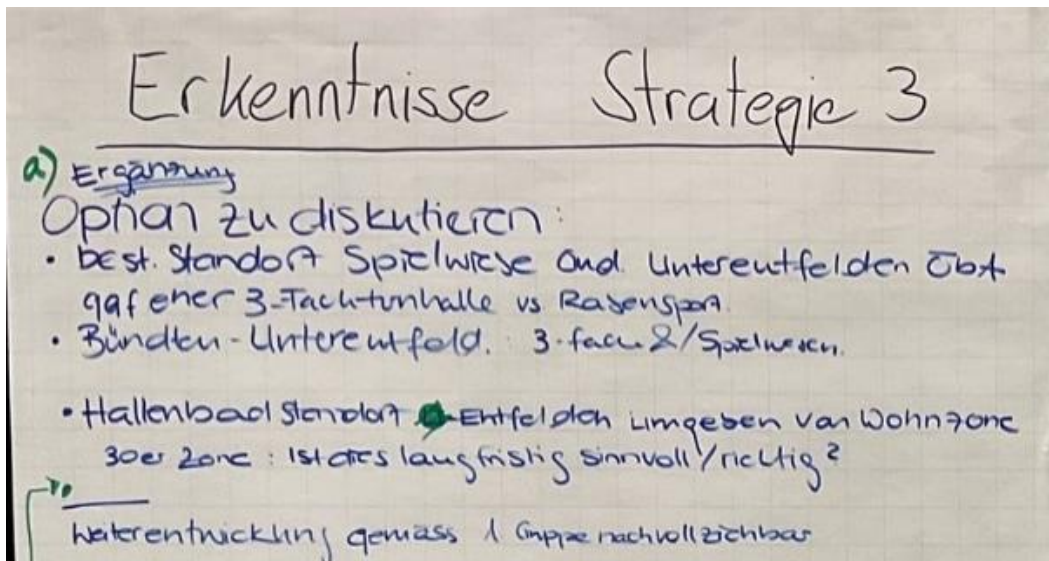 Erkenntnisse Strategie 3
a) Ergänzung
Option zu diskutieren:
• best. Standort Spielwiese und Unterentfelden Obst
ggf einer 3-fachturnhalle vs Rasensport.
• Bündten - Unterentfeld. 3-fach &/Spielwiesen.
• Hallenbad Standort Entfelden umgeben von Wohnzone
30er Zone: Ist dies langfristig sinnvoll/richtig?
Weiterentwicklung gemäss 1 Gruppe nachvollziehbar